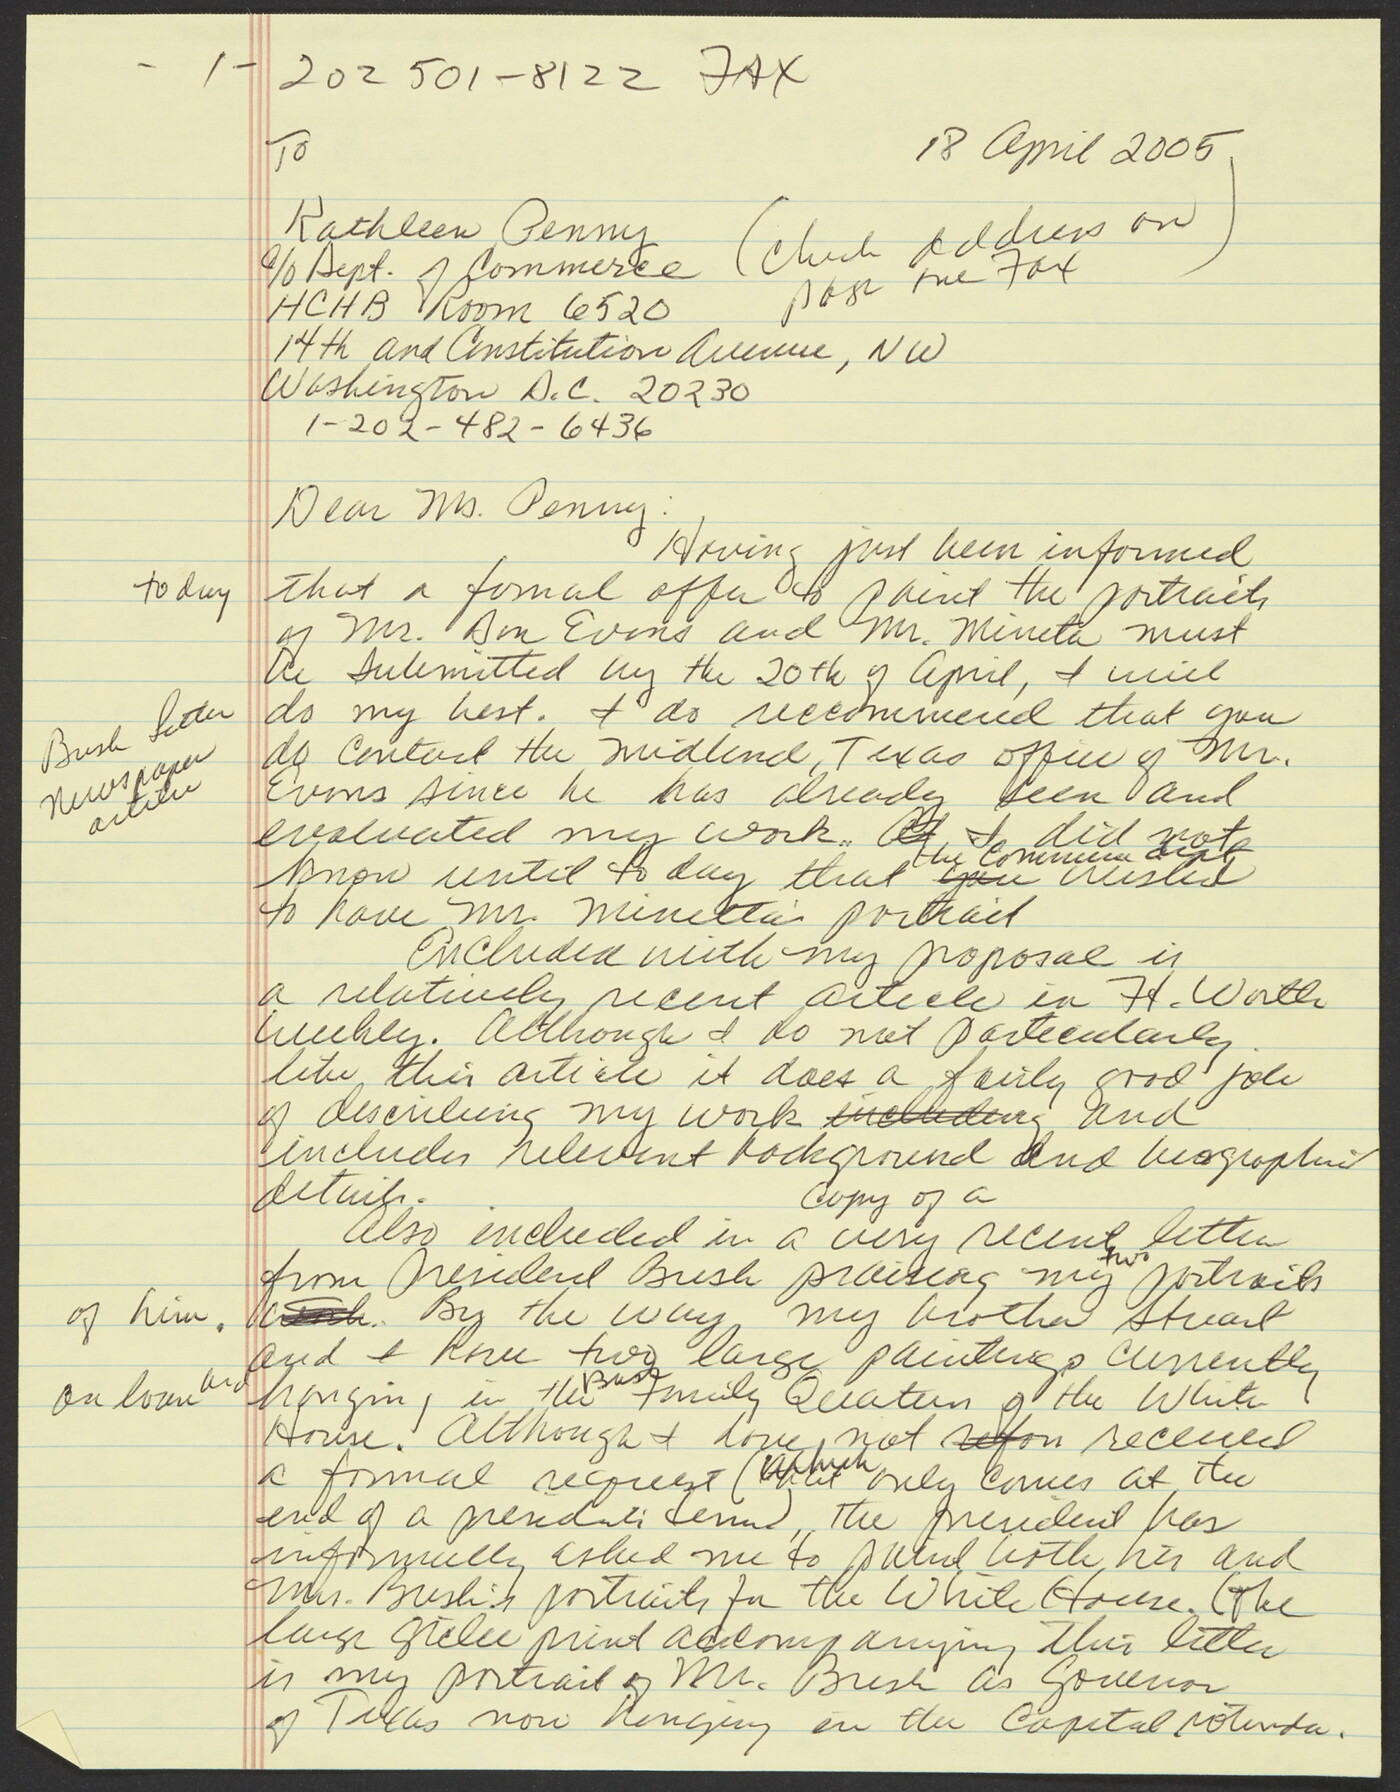 - 1- 202 501-8122 FAX
To
18 April 2005
Kathleen Penny
c/o Dept. of Commerce
(Check address on
page one Fax)
HCHB Room 6520
14th and Constitution Avenue, NW
Washington D.C. 20230
1-202-482-6436
Dear Ms. Penny:
Having just been informed
today that a formal offer to paint the portraits
of Mr. Don Evans and Mr. Mineta must
be submitted by the 20th of April, I will
do my best. I do reccommend that you
Bush Letter
Newspaper
article
do contact the Midland, Texas office of Mr.
Evans since he has already seen and
evaluated my work. I did not
the Commerce Dept
know until today that you wished
to have Mr. Minetta's portrait
Encluded with my proposal is
a relatively recent article in Ft. Worth
Weekly. Although I do not particularly
like this article it does a fairly good job
of describing my work including and
includes relevent background and biographical
details.
copy of a
Also encluded in a very recent letter
two
from President Bush praising my portraits
of him. By the way my brother Stuart
and I have two large paintings currently
on loan and Bush
hanging in the Family Quaters of the White
House. Although I have not received
which
a formal request (that only comes at the
end of a presidents term), the president has
informally asked me to paint both his and
Mrs. Bush's portraits for the White House. (The
large Giclee print accompanying this letter
is my portrait of Mr. Bush as Governor
of Texas now hanging in the Capital rotunda.